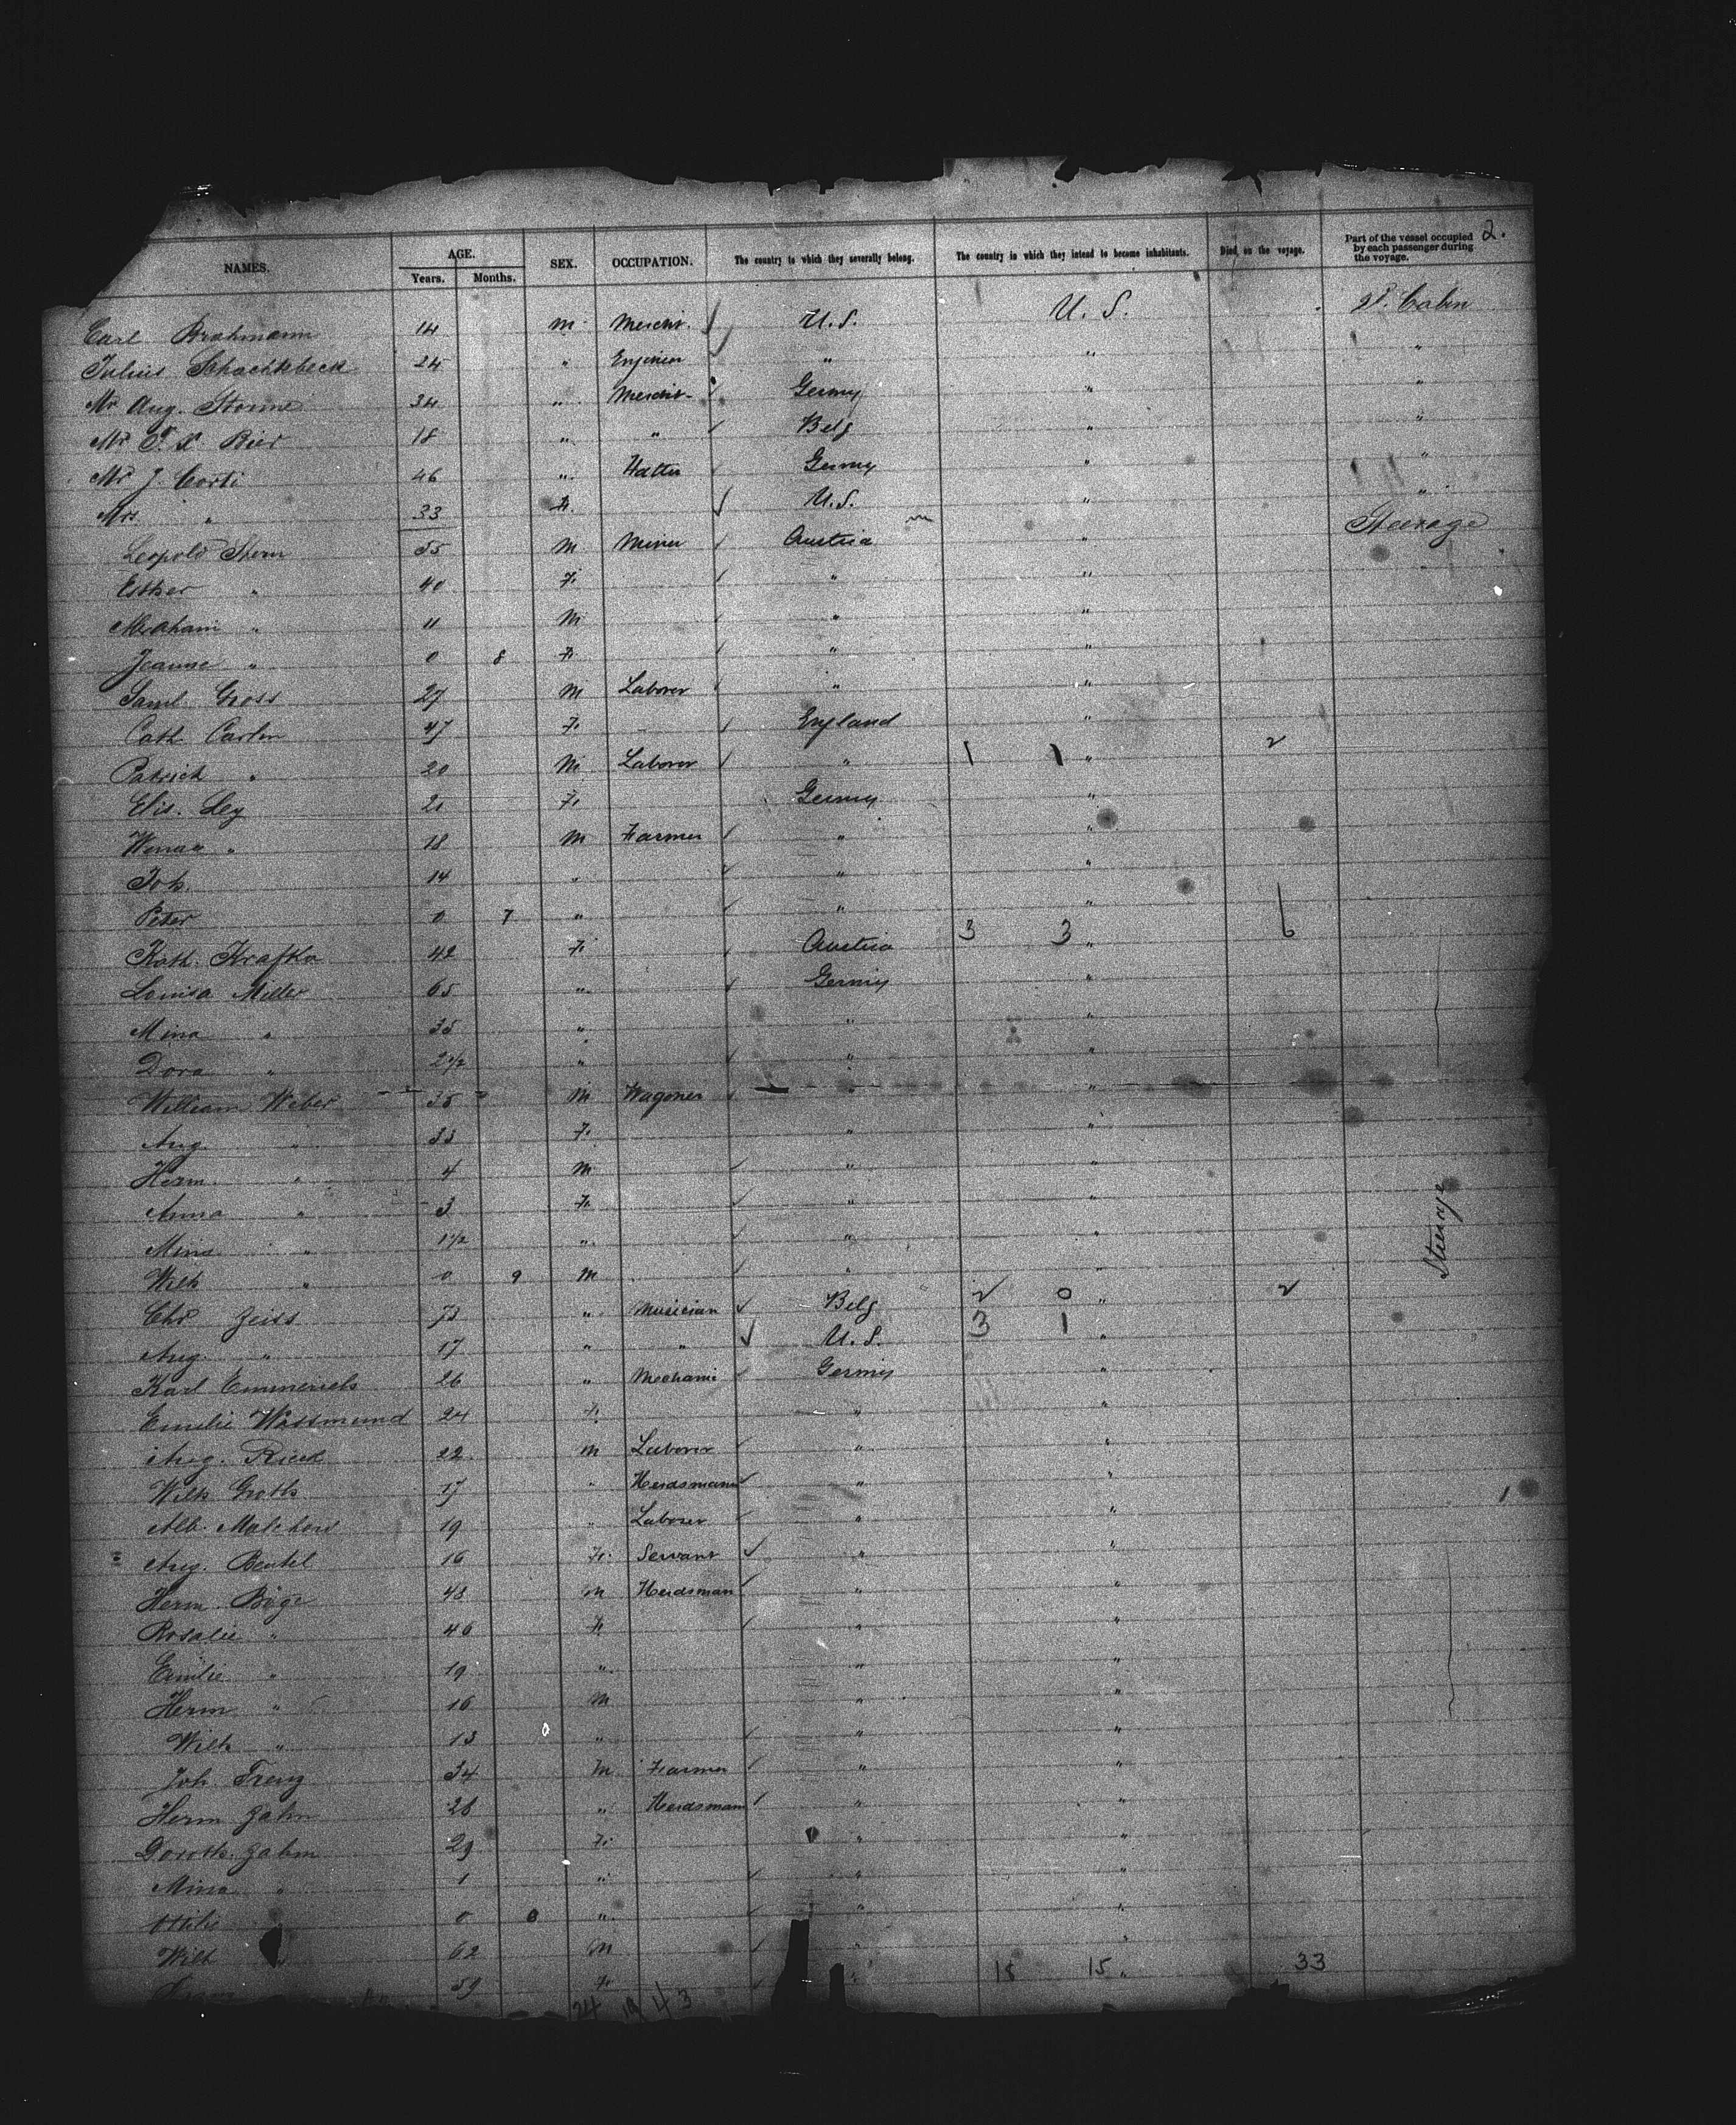 2.
NAMES. AGE. Years. Months. SEX. OCCUPATION. The country to which they severally belong. The country in which they intend to become inhabitants. Died on the voyage. Part of the vessel occupied by each passenger during the voyage.
Carl Brahmann 14 M Mercht. U.S. U.S. Cabin
Julius Schachtebeck 24 " Enginer " " "
Mr Aug. Storme 34 " Mercht. Germy " "
Mr Rier 18 " " Belg " "
Mr J Corti 46 " Hatter Germy " "
Mrs " 33 F. U.S. " "
Leopold Stern 55 M Miner Austria " Steerage
Esther " 40 F. " "
Abraham " 11 M " "
Jeanne " 0 8 F. " "
Saml. Gross 27 M Laborer " "
Cath Carlin 47 F. England "
Patrick " 20 M Laborer " 1 1 " 2
Elis. Ley 21 F. Germy "
" 18 M Farmer " "
Joh. 14 " " "
Peter 0 7 " " "
Kath. Krafka 42 F. Austria 3 3 " 6
Louisa Miller 65 " Germy "
Mina " 35 " " "
Dora " 2 1/2 " " "
William Weber 35 M Wagoner " "
Aug. " 33 F. " "
Herm. " 4 M " "
Anna " 3 F. " "
Mina " 1 1/2 " " "
Wilh " 0 9 M " "
Chr Zeiss 73 " Musician Belg 2 0 " 2
Aug. " 17 " " U.S. 3 1 "
Karl Emmerich 26 " Mechanic Germy "
Emilie Wassmund 24 F. " "
Aug. Rieck 22 M Laborer " "
Wilh Groth 17 " Herdsman " "
Alb. Malchow 19 " Laborer " "
Aug. Beutel 16 F. Servant " "
Herm. Böge 48 M Herdsman " "
Rosalie " 46 F. " "
Emilie " 19 " " "
Herm " 16 M " "
Wilh " 13 " " "
Joh. Frenz 34 M Farmer " "
Herm Zahn 28 " Herdsman " "
Doroth. Zahn 29 F. " "
Mina " 1 " " "
Ottilie 0 8 " " "
Wilh 62 M " "
59 F. " 15 15 " 33
24 19 43
Steerage